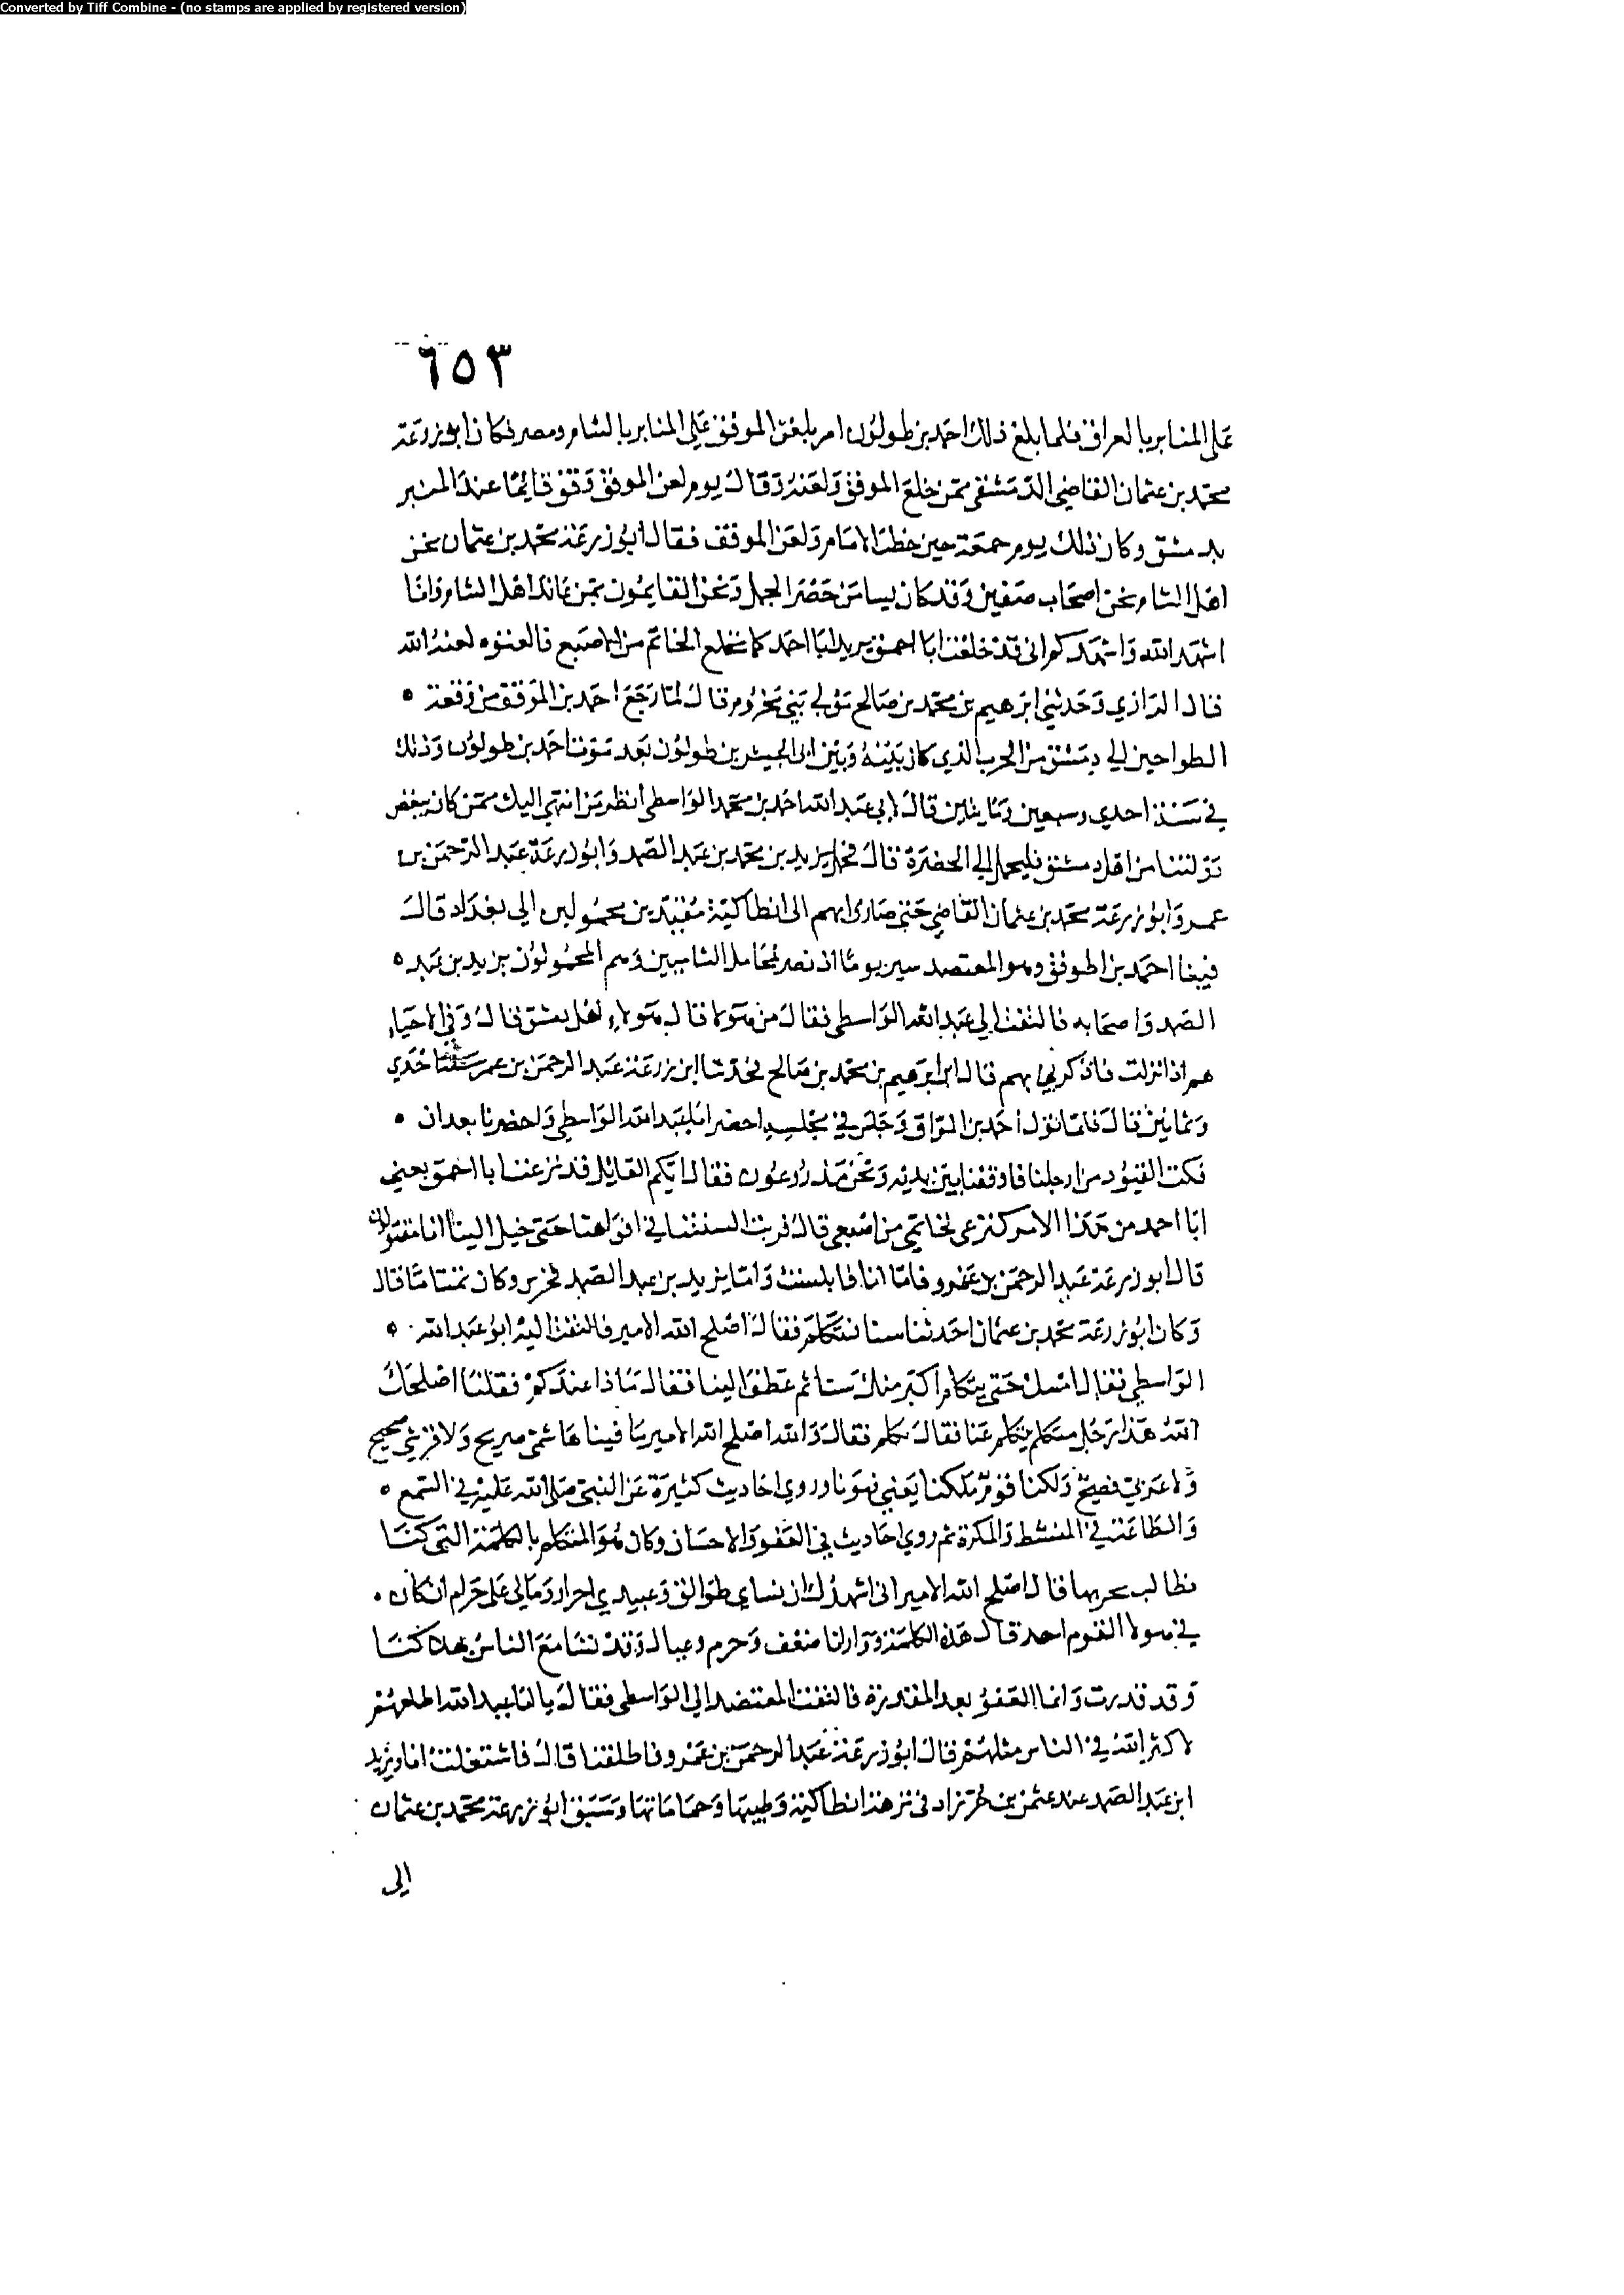 Converted by Tiff Combine - (no stamps are applied by registered version)
٦٥٣
على المنابر بالعراق فلما بلغ ذلك احمد بن طولون امر بلعن الموفق على المنابر بالشام ومصر فكان ابو زرعة
محمد بن عثمان القاضي الدمشقي ممن خلع الموفق ولعنه وقال يوم لعن الموفق وقف قائما عند المنبر
بدمشق وكان ذلك يوم جمعة حين خطب الامام ولعن الموفق فقال ابو زرعة محمد بن عثمان نحن
اهل الشام نحن اصحاب صفين وقد كان فينا من حضر الجمل ونحن القايمون بمن عاند اهل الشام وانا
اشهد الله واشهدكم اني قد خلعت ابا احمق يريد ابا احمد كما يخلع الخاتم من الاصبع فالعنوه لعنه الله
قال الرازي وحدثني ابرهيم بن محمد بن صالح مولى بني مخزوم قال لما رجع احمد بن الموفق من وقعة
الطواحين الى دمشق من الحرب الذي كان بينه وبين ابي الجيش بن طولون بعد موت احمد بن طولون وذلك
في سنة احدى وسبعين ومايتين قال لابي عبد الله احمد بن محمد الواسطي انظر من انتهى اليك ممن كان يبغض
دولتنا من اهل دمشق فليحمل الى الحضرة قال فحمل يزيد بن محمد بن عبد الصمد وابو زرعة عبد الرحمن بن
عمرو وابو زرعة محمد بن عثمان القاضي حتى صاروا بهم الى انطاكية مقيدين محمولين الى بغداد قال
فبينا احمد بن الموفق وهو المعتضد يسير يوما اذ نصر بمحامل الشاميين وهم المحمولون يزيد بن عبد
الصمد واصحابه فالتفت الى عبد الله الواسطي فقال من هولا قال هولاء اهل دمشق قال وفي الاحياء
هم اذا نزلت فاذكرني بهم قال ابرهيم بن محمد بن صالح فحدثنا ابو زرعة عبد الرحمن بن عمر سنة احدى
وثمانين قال فلما نزل احمد بن الموفق وجلس في مجلسه احضر ابا عبد الله الواسطي واحضرنا بعد ان
فكت القيود من ارجلنا فاوقفنا بين يديه ونحن مذعورون فقال ايكم القايل قد نزعت ابا احمق يعني
ابا احمد من هذا الامر كنزعي لخاتمي من اصبعي قال فربت السنتنا في افواهنا حتى خيل الينا اننا مقتولون
قال ابو زرعة عبد الرحمن بن عمرو فاما انا فابلست واما يزيد بن عبد الصمد فخرس وكان تمتاما قال
وكان ابو زرعة محمد بن عثمان احدثنا سنا فتكلم فقال اصلح الله الامير فالتفت اليه ابو عبد الله
الواسطي فقال امسك حتى يتكلم اكبر منك سنا ثم عطف الينا فقال ماذا عندكم فقلنا اصلحك
الله هذا رجل متكلم يتكلم عنا فقال تكلم فقال والله اصلح الله الامير ما فينا هاشمي صريح ولا قرشي صحيح
ولا عربي فصيح ولكنا قوم ملكنا يعني قهرنا وروى احاديث كثيرة عن النبي صلى الله عليه في السمع
والطاعة في المنشط والمكره ثم روى احاديث في العفو والاحسان وكان هو المتكلم بالكلمة التي كنا
نطالب بحربها قال اصلح الله الامير اني اشهدك ان نساي طوالق وعبيدي احرار ومالي علي حرام ان كان
في هولا القوم احد قال هذه الكلمة ووراءنا ضعف وحرم وعيال وقد تسامع الناس بهلاكنا
وقد قدرت وانما العفو بعد المقدرة فالتفت المعتضد الى الواسطي فقال يا ابا عبد الله اطلقهم
لا كثر الله في الناس مثلهم قال ابو زرعة عبد الرحمن بن عمرو فاطلقنا قال فاشتغلت انا ويزيد
ابن عبد الصمد عند عثمن بن خرزاد في نزهة انطاكية وطيبها وحماماتها وسبق ابو زرعة محمد بن عثمان
الى